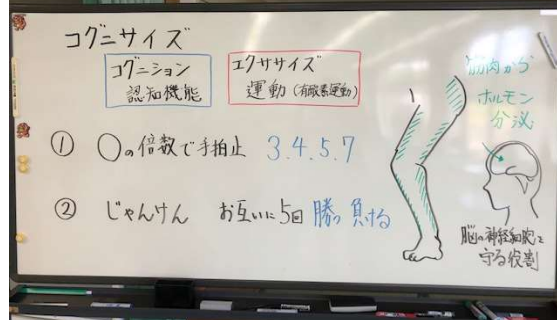 コグニサイズ
コグニション
認知機能
エクササイズ
運動（有酸素運動）
① ○の倍数で手拍止 3.4.5.7
② じゃんけん お互いに5回 勝つ 負ける
筋肉から
ホルモン
分泌
脳の神経細胞を
守る役割